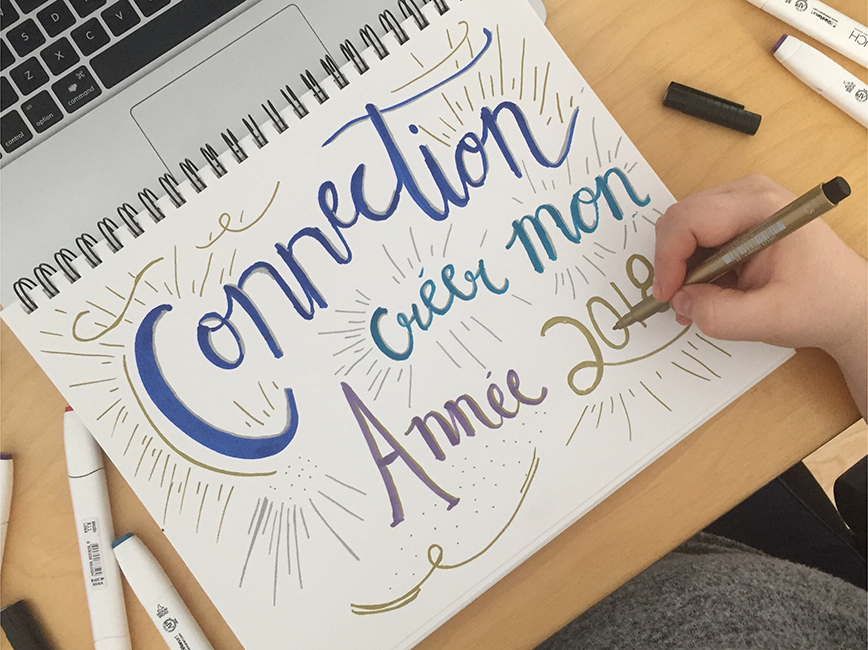 Connection
créer mon
Année 2018
Z
X
C
V
B
N
M
control
option
⌘
command